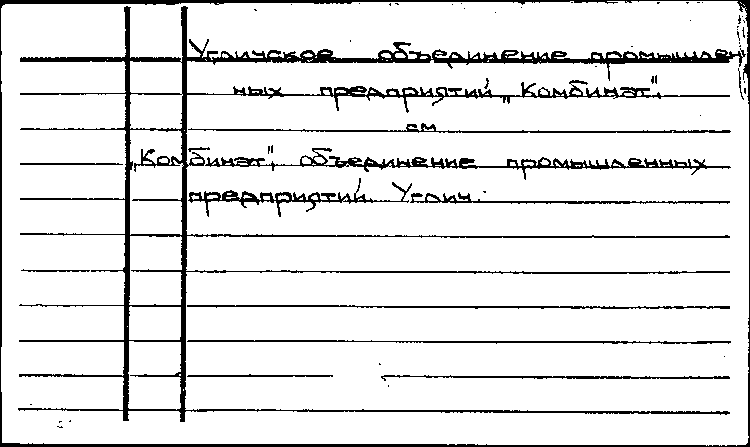 Угличское объединение промышлен
ных предприятий „Комбинат".
см
„Комбинат", объединение промышленных
предприятий. Углич.